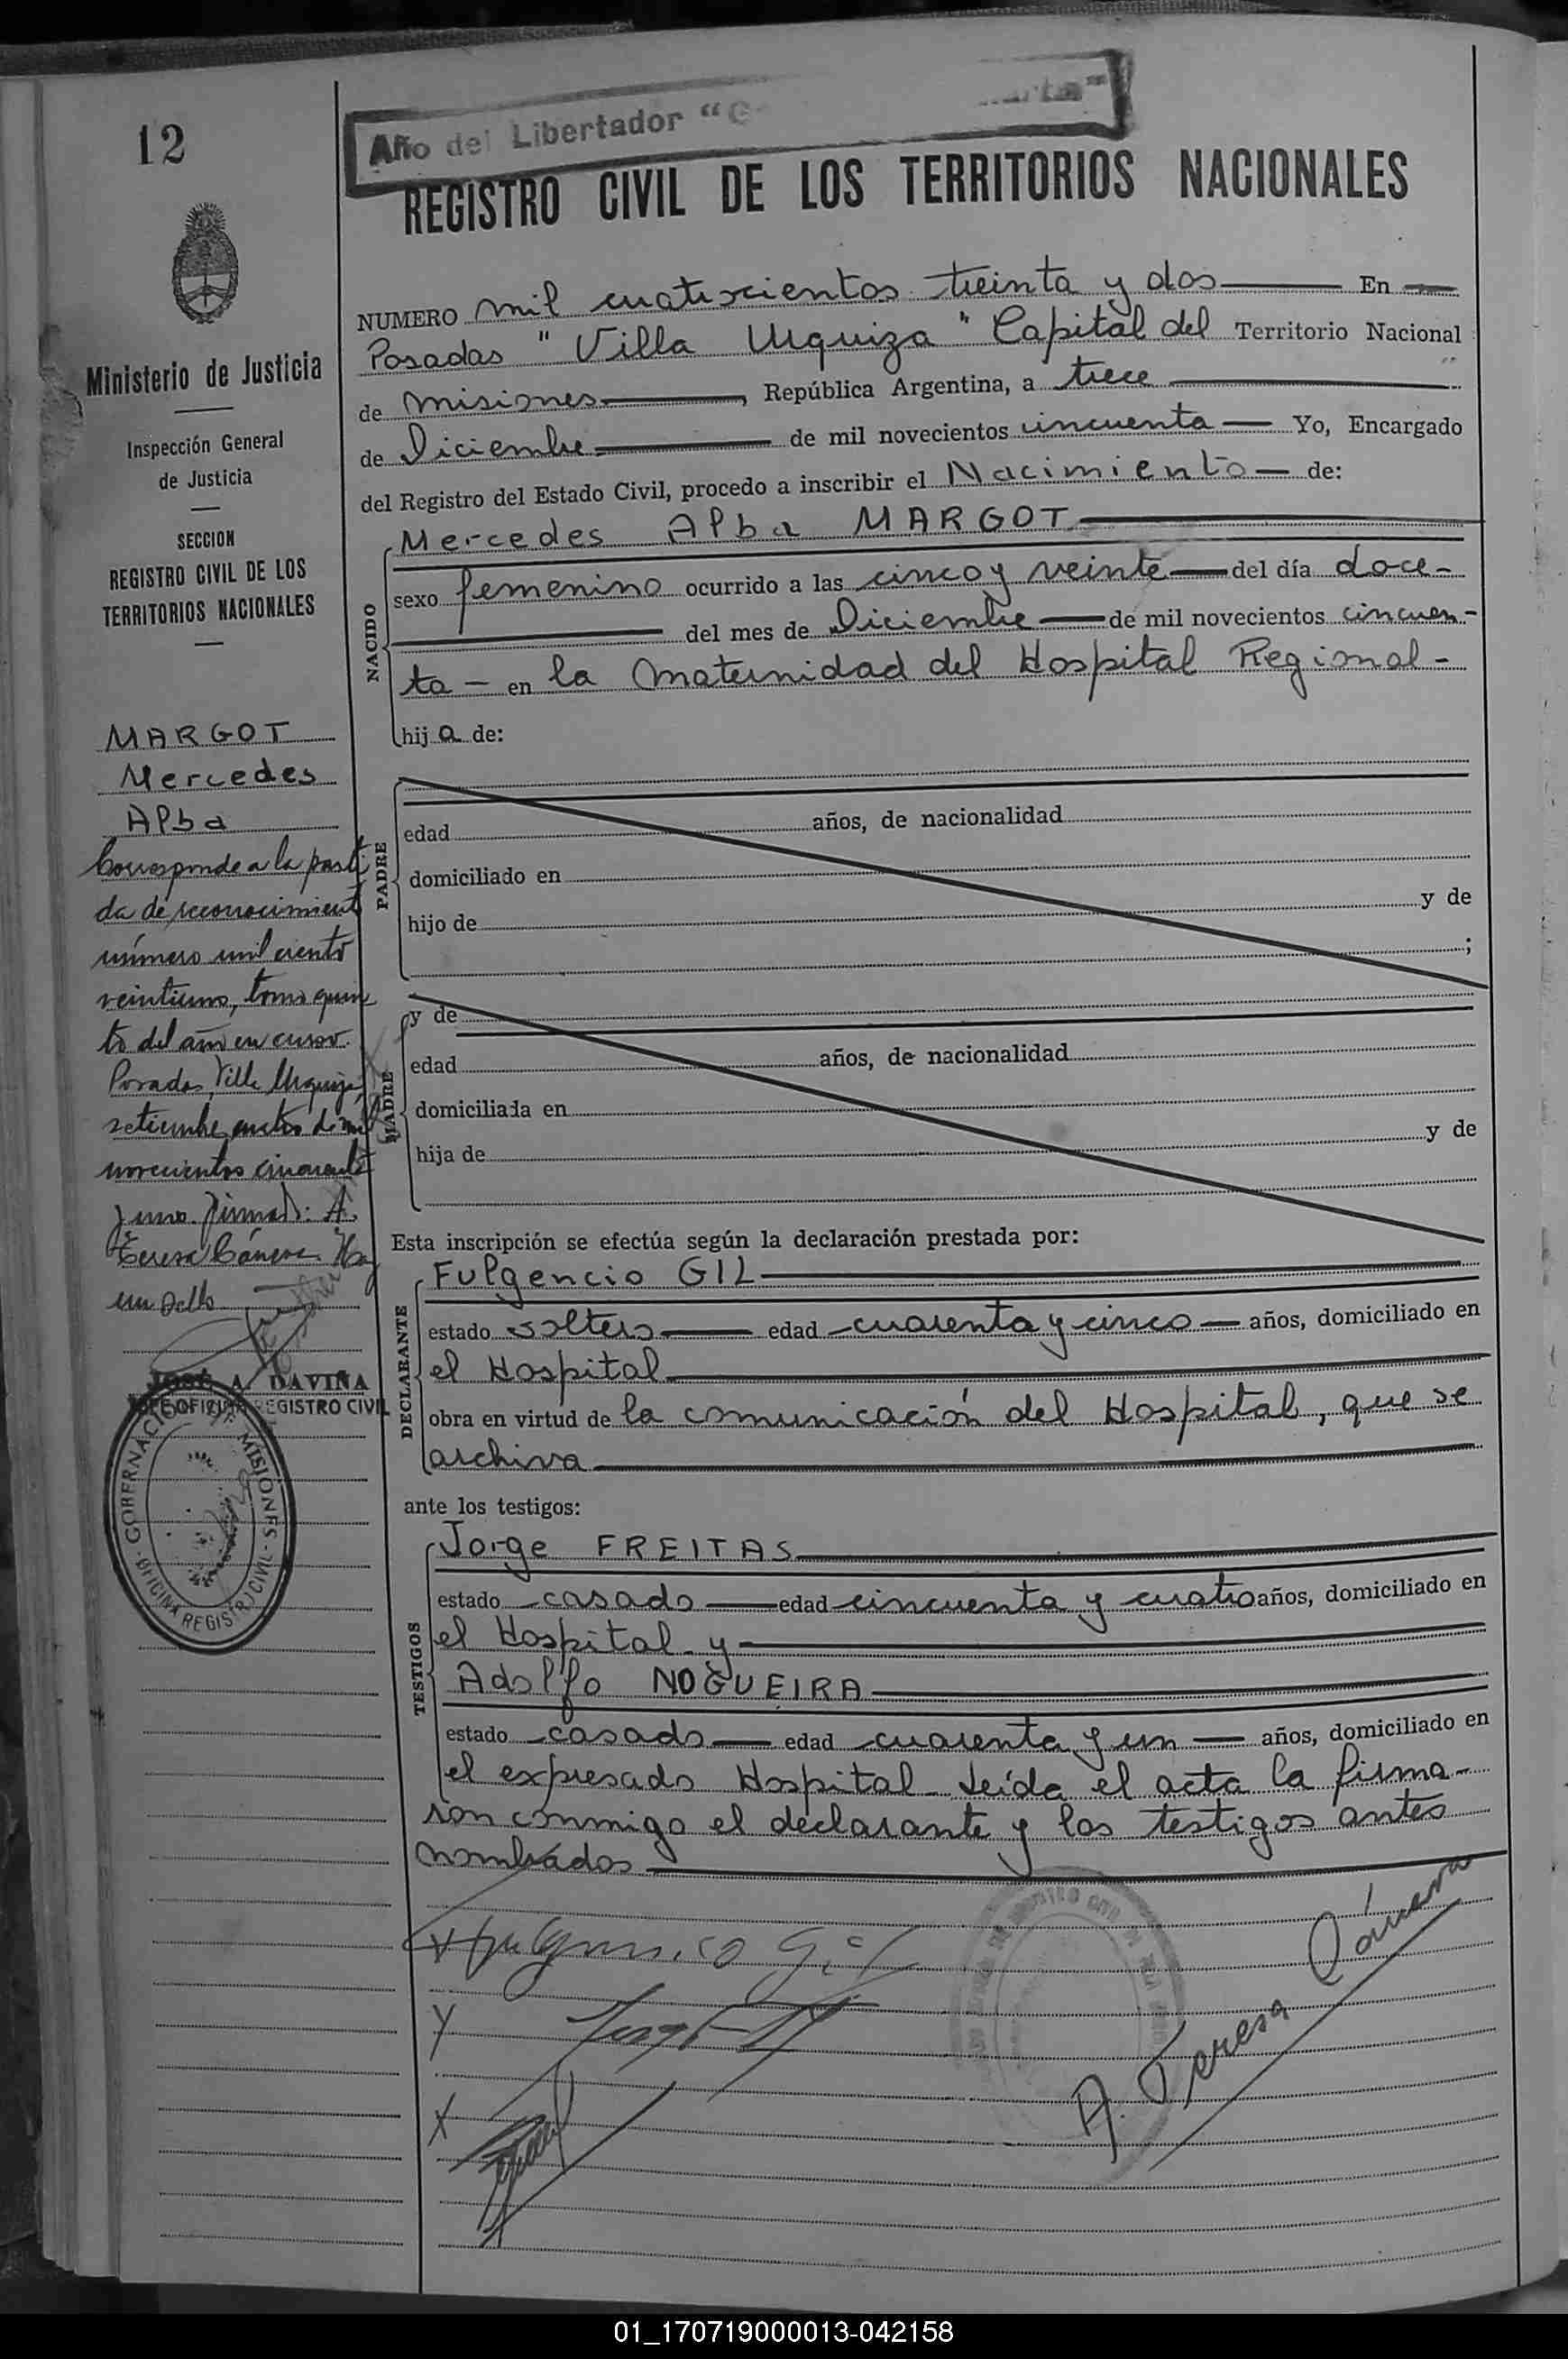 12
Año del Libertador "G
REGISTRO CIVIL DE LOS TERRITORIOS NACIONALES
Ministerio de Justicia
Inspección General
de Justicia
SECCION
REGISTRO CIVIL DE LOS
TERRITORIOS NACIONALES
MARGOT
Mercedes
Alba
Corresponde a la parti
da de reconocimiento
número mil ciento
veintiuno, tomo quin
to del año en curso.
Posadas, Villa Urquiza,
setiembre cuatro de mil
novecientos cincuenta
y uno. Firmado: A.
Teresa Cáneva. Hay
un sello
JOSÉ A. DAVIÑA
JEFE OFICINA REGISTRO CIVIL
GOBERNACION DE MISIONES - OFICINA REGISTRO CIVIL -
NUMERO mil cuatrocientos treinta y dos En
Posadas "Villa Urquiza" Capital del Territorio Nacional
de Misiones, República Argentina, a trece
de Diciembre de mil novecientos cincuenta Yo, Encargado
del Registro del Estado Civil, procedo a inscribir el Nacimiento de:
NACIDO
Mercedes Alba MARGOT
sexo femenino ocurrido a las cinco y veinte del día doce-
del mes de Diciembre de mil novecientos cincuen-
ta - en la Maternidad del Hospital Regional-
hij a de:
PADRE
edad años, de nacionalidad
domiciliado en
hijo de y de
;
MADRE
y de
edad años, de nacionalidad
domiciliada en
hija de y de
Esta inscripción se efectúa según la declaración prestada por:
DECLARANTE
Fulgencio GIL
estado soltero edad cuarenta y cinco años, domiciliado en
el Hospital
obra en virtud de la comunicación del Hospital, que se
archiva
ante los testigos:
TESTIGOS
Jorge FREITAS
estado casado edad cincuenta y cuatro años, domiciliado en
el Hospital y
Adolfo NOGUEIRA
estado casado edad cuarenta y un años, domiciliado en
el expresado Hospital Leída el acta la firma-
ron conmigo el declarante y los testigos antes
nombrados
Fulgencio Gil
A. Teresa Cáneva
01_170719000013-042158